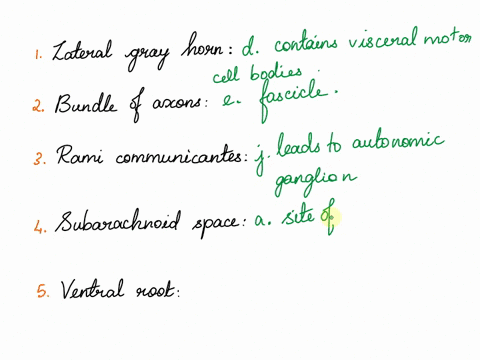 1. Lateral gray horn: d. contains visceral motor
cell bodies.
2. Bundle of axons: e. fascicle.
3. Rami communicantes: j. leads to autonomic
ganglion
4. Subarachnoid space: a. site of
5. Ventral root: